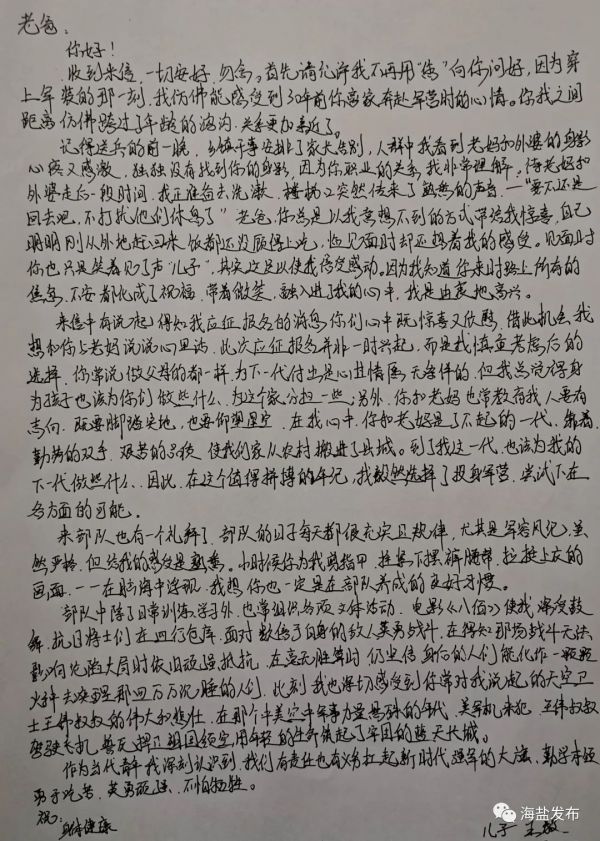 老爸：
你好！
收到来信，一切安好，勿念。首先请允许我不再用“您”向你问好，因为穿
上军装的那一刻，我仿佛能感受到30年前你离家奔赴军营时的心情。你我之间
距离仿佛跨过了年龄的鸿沟，关系更加亲近了。
记得送兵的前一晚，乡镇干事安排了家人告别，人群中我看到老妈和外婆的身影
心疼又感激，独独没有找到你的身影，因为你职业的关系，我非常理解。待老妈和
外婆走后一段时间，我正准备去洗漱，楼梯又突然传来了熟悉的声音，——“要不还是
回去吧，不打扰他们休息了”老爸，你总是以我意想不到的方式带给我惊喜，自己
明明刚从外地赶回来，饭都还没顾得上吃，怕见面时却还想着我的感受。见面时
你也只是笑着叫了声“儿子”，其实这足以使我倍受感动。因为我知道你来时路上所有的
焦急、不安都化成了祝福，带着微笑，融入进了我的心中，我是由衷地高兴。
来信中有说起，得知我应征报名的消息，你们心中既惊喜又欣慰，借此机会，我
想和你与老妈说说心里话，此次应征报名并非一时兴起，而是我慎重考虑后的
选择，你常说做父母的都一样，为下一代付出是心甘情愿无条件的，但我总觉得身
为孩子也该为你们做些什么，为这个家分担一些；另外，你和老妈也常教育我人要有
志向，既要脚踏实地，也要仰望星空，在我心中，你和老妈是了不起的一代，靠着
勤劳的双手，艰苦的品德，使我们家从农村搬进了县城。到了我这一代，也该为我的
下一代做些什么，因此，在这个值得拼搏的年纪，我毅然选择了投身军营，尝试下在
多方面的可能。
来部队也有一个礼拜了，部队的日子每天都很充实且规律，尤其是军容风纪，虽
然严格，但给我的感受是熟悉。小时候你为我剪指甲，拴紧下摆裤腰带，拉拢上衣的
画面，一一在脑海中浮现，我想，你也一定是在部队养成的良好习惯。
部队中除了日常训练、学习外，也常组织各项文体活动，电影《八佰》使我深受鼓
舞，抗日将士们在四行仓库，面对数倍于自身的敌人英勇战斗，在得知那场战斗无法
影响沦陷大局时依旧顽强抵抗，在毫无胜算时仍坚信身后的人们能化作一颗颗
火种去唤醒那四万万沉睡的人们，此刻我也深切感受到你常对我说起的天空卫
士王伟叔叔的伟大和悲壮，在那个中美空中军事力量悬殊的年代，美军机来犯，王伟叔叔
驾驶老机，誓死捍卫祖国领空，用年轻的生命筑起了牢固的蓝天长城。
作为当代青年我深刻认识到，我们有责任也有义务扛起新时代强军的大旗，勤学本领
勇于吃苦，英勇顽强、不怕牺牲。
祝：
身体健康
儿子 王
海盐发布